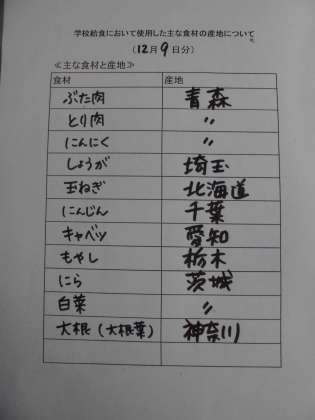 学校給食において使用した主な食材の産地について
(12月9日分)
≪主な食材と産地≫
食材 産地
ぶた肉 青森
とり肉 〃
にんにく 〃
しょうが 埼玉
玉ねぎ 北海道
にんじん 千葉
キャベツ 愛知
もやし 栃木
にら 茨城
白菜 〃
大根(大根葉) 神奈川